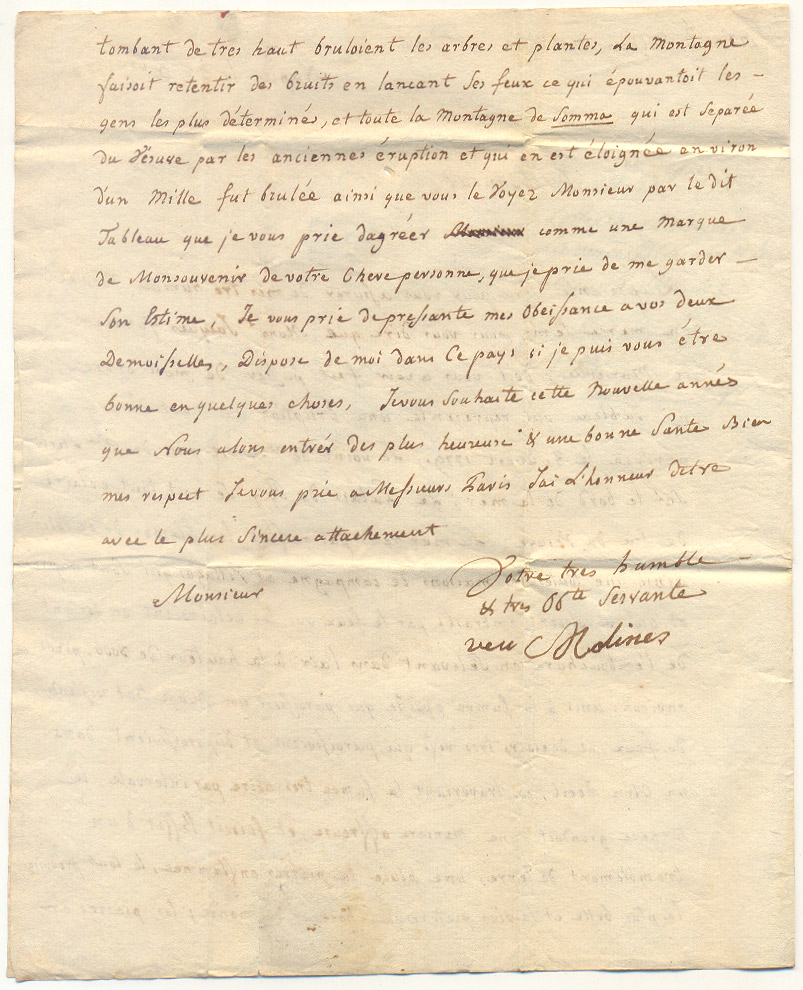 tombant de tres haut bruloient les arbres et plantes, La Montagne
faisoit retentir des bruits en lancant Ses feux ce qui épouvantoit les –
gens les plus déterminés, et toute la Montagne de Somma qui est Separée
du Vésuve par les anciennes éruption et qui en est éloignée environ
d'un Mille fut brulée ainsi que vous le Voyez Monsieur par le dit
Tableau que je vous prie dagréer comme une Marque
de Monsouvenir de votre Chere personne, que je prie de me garder –
Son Estime, Je vous prie de pressante mes Obeissance a vos deux
Demoisselles, Dispose de moi dans Ce pays si je puis vous étre
bonne en quelques choses, Jevous Souhaite cette Nouvelle année
que Nous alons entrér des plus heureuse & une bonne Sante Bien
mes respect Jevous prie a Messieurs Paris Jai L'honneur detre
avec le plus Sincere attachement
Monsieur
Votre tres humble –
& tres Obte Servante
veu Molines